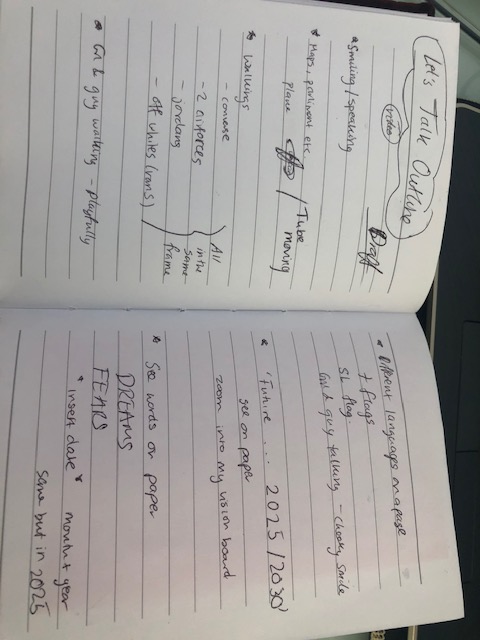 Let's Talk Outline
video
Draft
* Smiling/speaking
* Maps, parliment etc
plane / Tube
moving
* Walkings
- converse
- 2 airforces
- jordans
- off whites (vans)
All
in the
same
frame
* Girl & guy walking - playfully
* Different languages on a page
+ flags
SL flag
Girl & guy talking - cheeky smile
* 'Future ... 2025/2030'
see on paper
zoom into my vision board
* See words on paper
DREAMS
FEARS
* insert date * month + year
same but in 2025